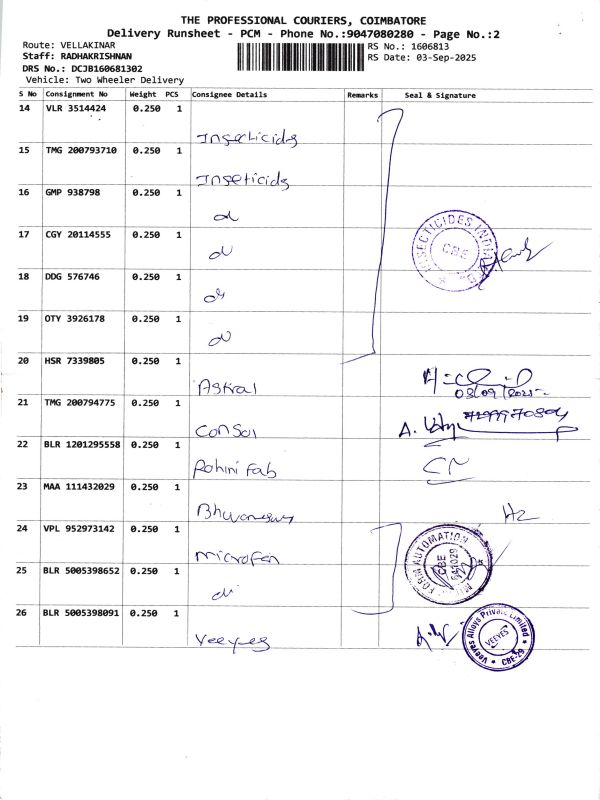 THE PROFESSIONAL COURIERS, COIMBATORE
Delivery Runsheet - PCM - Phone No.:9047080280 - Page No.:2
Route: VELLAKINAR
RS No.: 1606813
Staff: RADHAKRISHNAN
RS Date: 03-Sep-2025
DRS No.: DCJB160681302
Vehicle: Two Wheeler Delivery
S No Consignment No Weight PCS Consignee Details Remarks Seal & Signature
14 VLR 3514424 0.250 1
Insecticids
15 TMG 200793710 0.250 1
Inseticids
16 GMP 938798 0.250 1
17 CGY 20114555 0.250 1
INSECTICIDES INDIA
CBE
18 DDG 576746 0.250 1
19 OTY 3926178 0.250 1
20 HSR 7339805 0.250 1
Astral
03/09/2025
21 TMG 200794775 0.250 1
Consol
22 BLR 1201295558 0.250 1
Rohini Fab
23 MAA 111432029 0.250 1
24 VPL 952973142 0.250 1
Microfan
FORM AUTOMATION
CBE
641029
25 BLR 5005398652 0.250 1
26 BLR 5005398091 0.250 1
Veeyes
Veeyes Alloys Private Limited
VEEYES
CBE-29